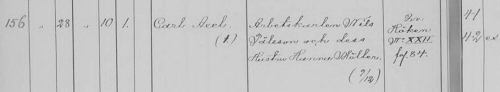 156 " 28 " 10 1. Carl Axel. Arbetskarlen Nils 41
(1.) Pålsson och dess Höken 42 ex
Hustru Hanna Möller. No XXII
(7/12) fol. 84.